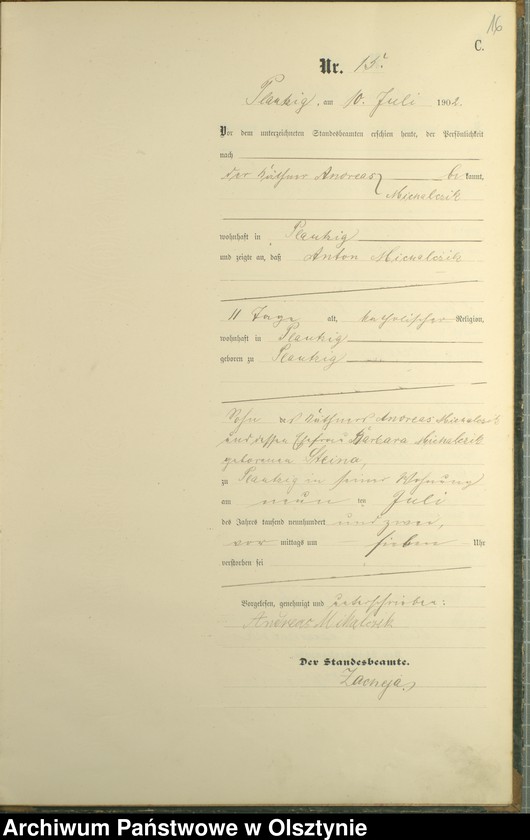 16
C.
Nr. 15.
Plautzig, am 10. Juli 1902.
Vor dem unterzeichneten Standesbeamten erschien heute, der Persönlichkeit
nach
der Käthner Andreas bekannt,
Michalzik
wohnhaft in Plautzig
und zeigte an, daß Anton Michalzik
11 Tage alt, katholischer Religion,
wohnhaft in Plautzig
geboren zu Plautzig
Sohn des Käthners Andreas Michalzik
und dessen Ehefrau Barbara Michalzik
geborenen
zu Plautzig in seiner Wohnung
am neun ten Juli
des Jahres tausend neunhundert und zwei,
vor mittags um sieben Uhr
verstorben sei
Vorgelesen, genehmigt und unterschrieben:
Andreas
Der Standesbeamte.
Archiwum Państwowe w Olsztynie